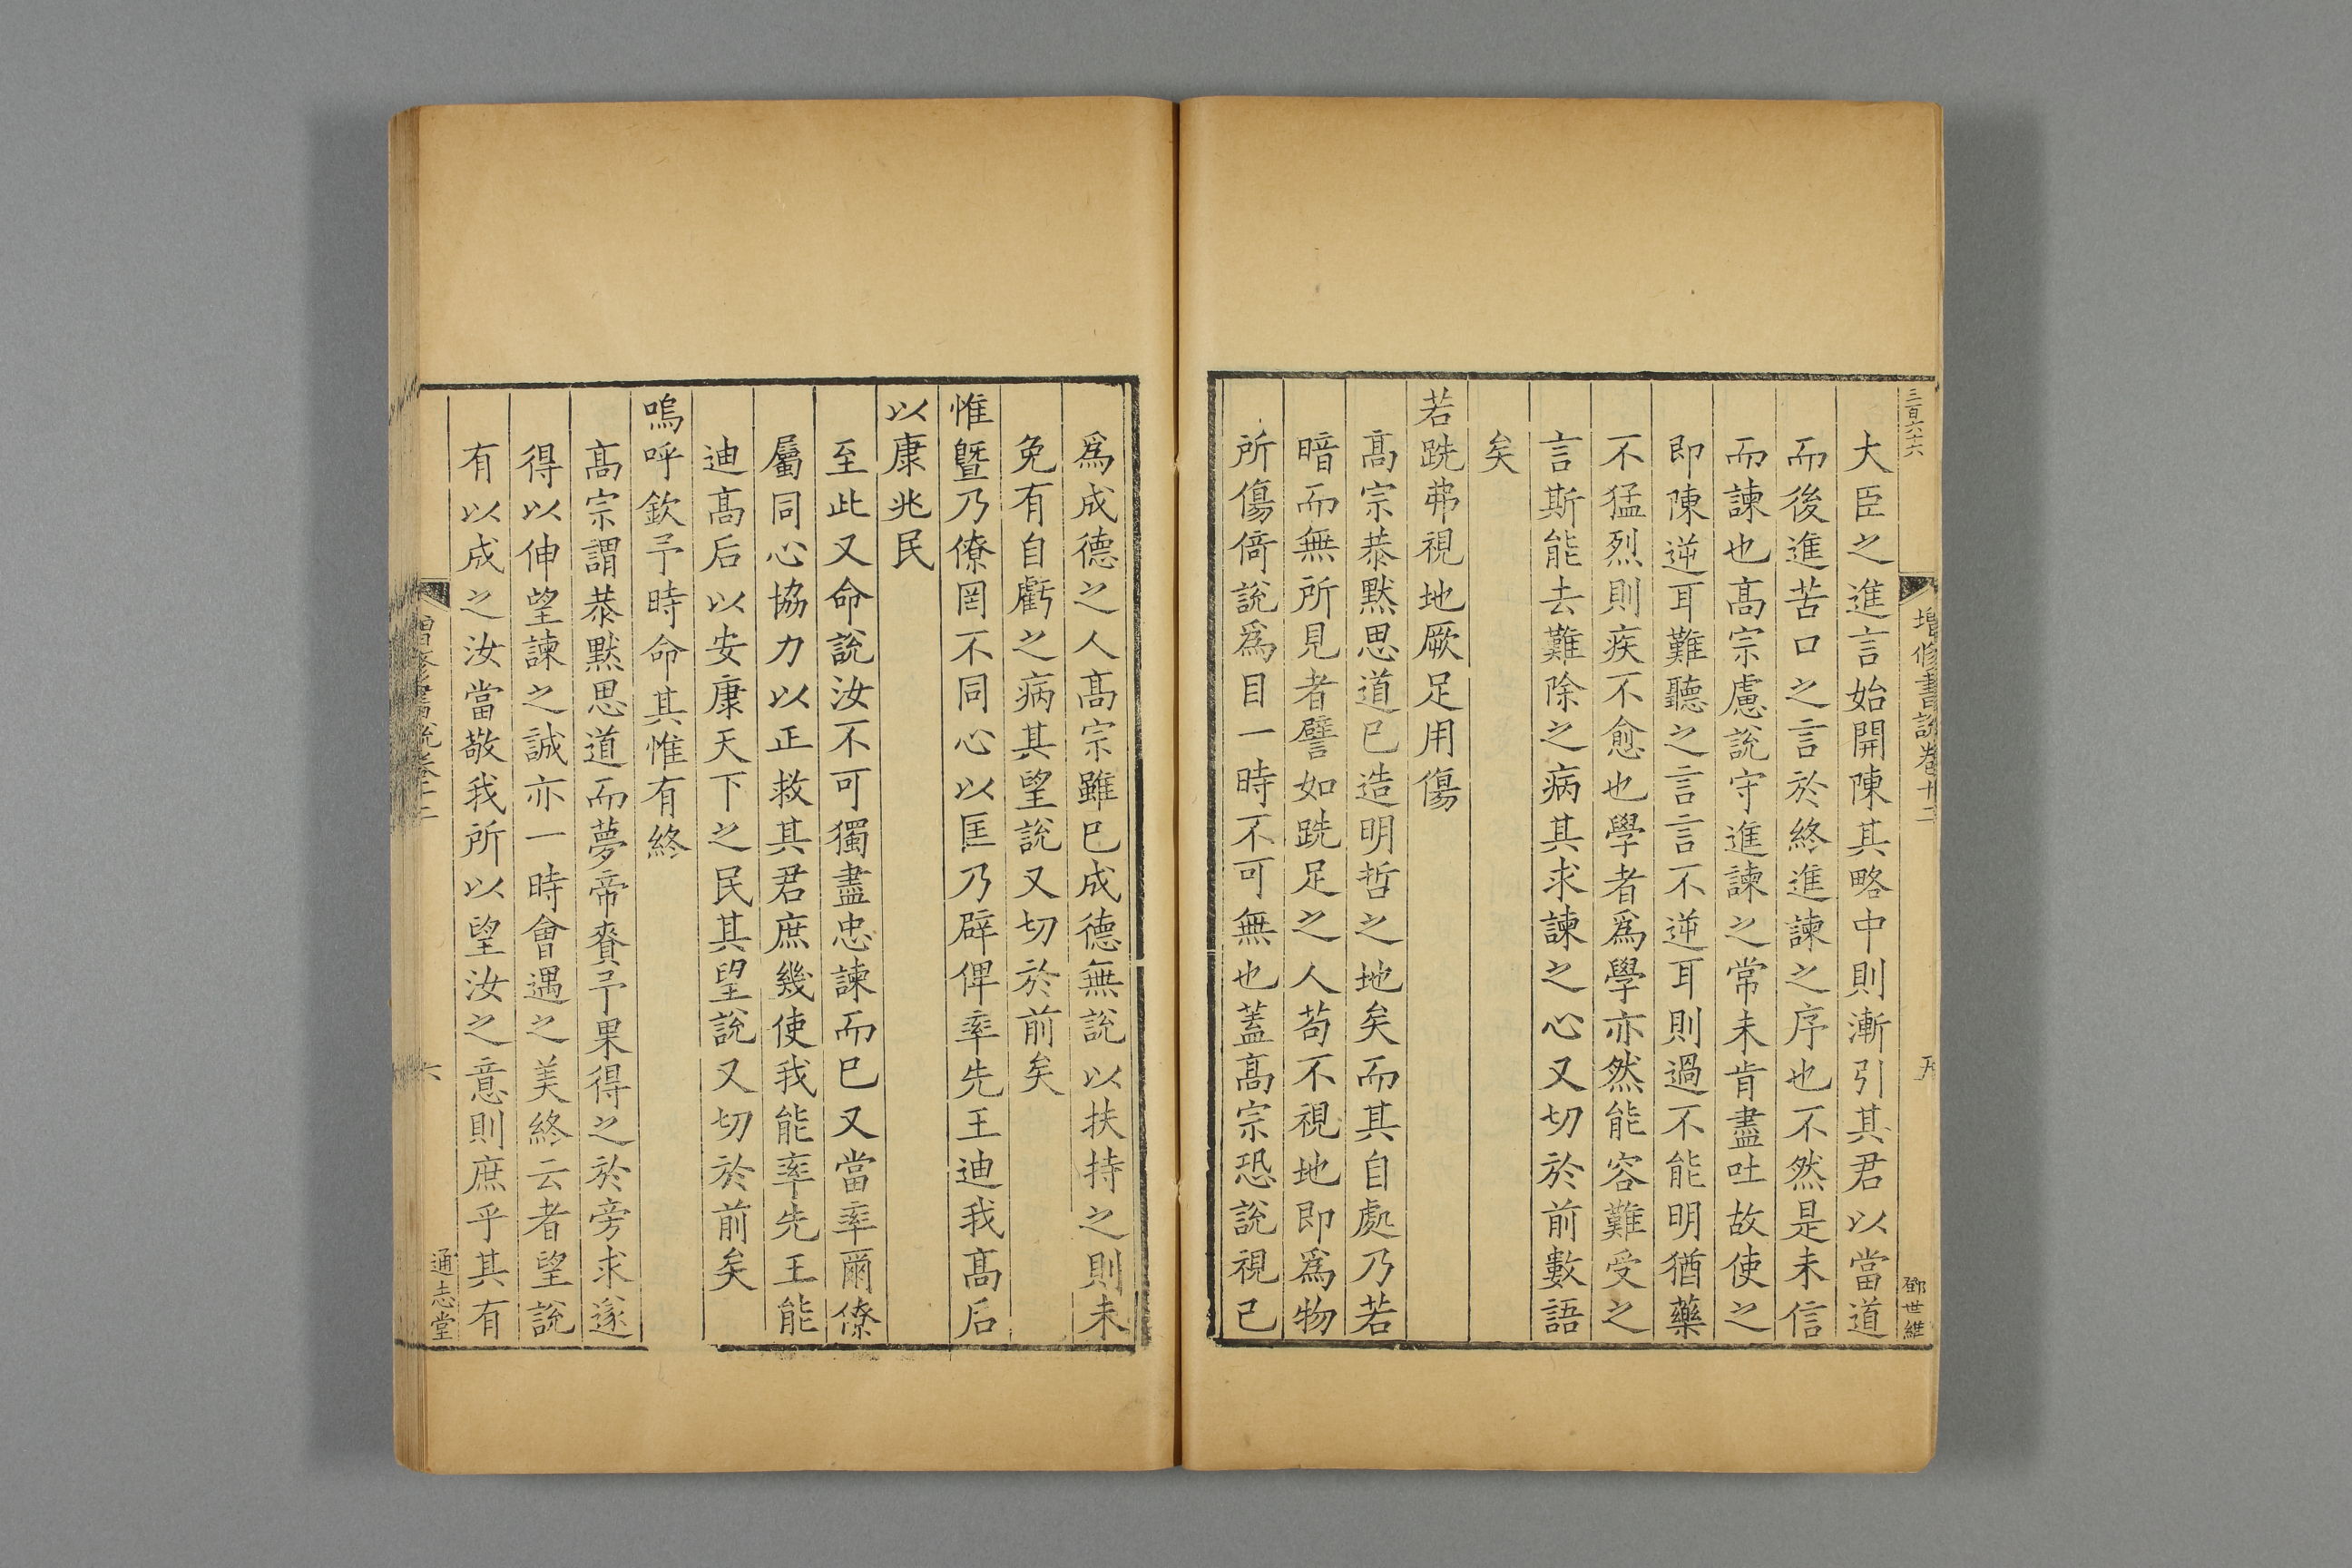 三百六十六
增修書說卷十二
五
鄧世維
大臣之進言始開陳其略中則漸引其君以當道
而後進苦口之言於終進諫之序也不然是未信
而諫也髙宗慮說守進諫之常未肯盡吐故使之
即陳逆耳難聽之言言不逆耳則過不能明猶藥
不猛烈則疾不愈也學者爲學亦然能容難受之
言斯能去難除之病其求諫之心又切於前數語
矣
若跣弗視地厥足用傷
髙宗恭黙思道已造明哲之地矣而其自處乃若
暗而無所見者譬如跣足之人苟不視地即爲物
所傷倚說爲目一時不可無也蓋髙宗恐說視已
爲成德之人髙宗雖已成德無說以扶持之則未
免有自虧之病其望說又切於前矣
惟曁乃僚罔不同心以匡乃辟俾率先王迪我髙后
以康兆民
至此又命說汝不可獨盡忠諫而已又當率爾僚
屬同心協力以正救其君庶幾使我能率先王能
迪髙后以安康天下之民其望說又切於前矣
嗚呼欽予時命其惟有終
髙宗謂恭黙思道而夢帝賚予果得之於旁求遂
得以伸望諫之誠亦一時會遇之美終云者望說
有以成之汝當敬我所以望汝之意則庶乎其有
增修書說卷十二
六
通志堂